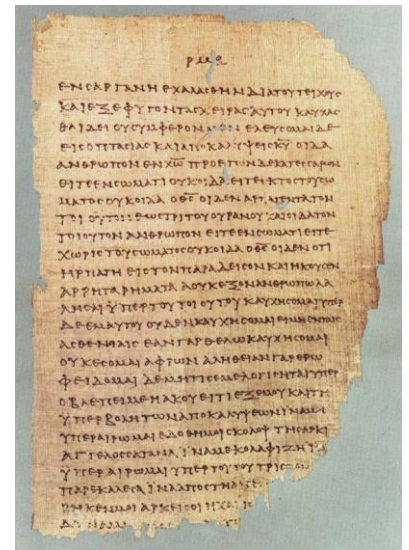 ΡΜΘ
ΕΝ ϹΑΡΓΑΝΗ ΕΧΑΛΑϹΘΗΝ ΔΙΑ ΤΟΥ ΤΕΙΧΟΥϹ
ΚΑΙ ΕΞΕΦΥΓΟΝ ΤΑϹ ΧΕΙΡΑϹ ΑΥΤΟΥ ΚΑΥΧΑϹ
ΘΑΙ ΔΕΙ ΟΥ ϹΥΜΦΕΡΟΝ ΕΛΕΥϹΟΜΑΙ ΔΕ
ΕΙϹ ΟΠΤΑϹΙΑϹ ΚΑΙ ΑΠΟΚΑΛΥΨΕΙϹ Κ̅Υ̅ ΟΙΔΑ
ΑΝΘΡΩΠΟΝ ΕΝ Χ̅Ω̅ ΠΡΟ ΕΤΩΝ ΔΕΚΑΤΕϹϹΑΡΩΝ
ΕΙΤΕ ΕΝ ϹΩΜΑΤΙ ΟΥΚ ΟΙΔΑ ΕΙΤΕ ΕΚΤΟϹ ΤΟΥ ϹΩ
ΜΑΤΟϹ ΟΥΚ ΟΙΔΑ Ο Θ̅Ϲ̅ ΟΙΔΕΝ ΑΡΠΑΓΕΝΤΑ ΤΟΝ
ΤΟΙΟΥΤΟΝ ΕΩϹ ΤΡΙΤΟΥ ΟΥΡΑΝΟΥ ΚΑΙ ΟΙΔΑ ΤΟΝ
ΤΟΙΟΥΤΟΝ ΑΝΘΡΩΠΟΝ ΕΙΤΕ ΕΝ ϹΩΜΑΤΙ ΕΙΤΕ
ΧΩΡΙϹ ΤΟΥ ϹΩΜΑΤΟϹ ΟΥΚ ΟΙΔΑ Ο Θ̅Ϲ̅ ΟΙΔΕΝ ΟΤΙ
ΗΡΠΑΓΗ ΕΙϹ ΤΟΝ ΠΑΡΑΔΕΙϹΟΝ ΚΑΙ ΗΚΟΥϹΕΝ
ΑΡΡΗΤΑ ΡΗΜΑΤΑ Α ΟΥΚ ΕΞΟΝ ΑΝΘΡΩΠΩ ΛΑ
ΛΗϹΑΙ ΫΠΕΡ ΤΟΥ ΤΟΙΟΥΤΟΥ ΚΑΥΧΗϹΟΜΑΙ ΥΠΕΡ
ΔΕ ΕΜΑΥΤΟΥ ΟΥΔΕΝ ΚΑΥΧΗϹΟΜΑΙ ΕΙ ΜΗ ΕΝ ΤΑΙϹ
ΑϹΘΕΝΕΙΑΙϹ ΕΑΝ ΓΑΡ ΘΕΛΩ ΚΑΥΧΗϹΟΜΑΙ
ΟΥΚ ΕϹΟΜΑΙ ΑΦΡΩΝ ΑΛΗΘΕΙΑΝ ΓΑΡ ΕΡΩ
ΦΕΙΔΟΜΑΙ ΔΕ ΜΗ ΤΙϹ ΕΜΕ ΛΟΓΙϹΗΤΑΙ ΥΠΕΡ
Ο ΒΛΕΠΕΙ ΜΕ Η ΑΚΟΥΕΙ ΤΙ ΕΞ ΕΜΟΥ ΚΑΙ ΤΗ
ΫΠΕΡΒΟΛΗ ΤΩΝ ΑΠΟΚΑΛΥΨΕΩΝ ΙΝΑ ΜΗ
ΥΠΕΡΑΙΡΩΜΑΙ ΕΔΟΘΗ ΜΟΙ ϹΚΟΛΟΨ ΤΗ ϹΑΡΚΙ
ΑΓΓΕΛΟϹ ϹΑΤΑΝΑ ΙΝΑ ΜΕ ΚΟΛΑΦΙΖΗ
ΫΠΕΡΑΙΡΩΜΑΙ ΥΠΕΡ ΤΟΥΤΟΥ ΤΡΙϹ
ΠΑΡΕΚΑΛΕϹΑ ΙΝΑ ΑΠΟϹΤΗ
ΡΗΚΕΝ ΜΟΙ ΑΡΚΕΙ ϹΟΙ Η ΧΑΡΙϹ